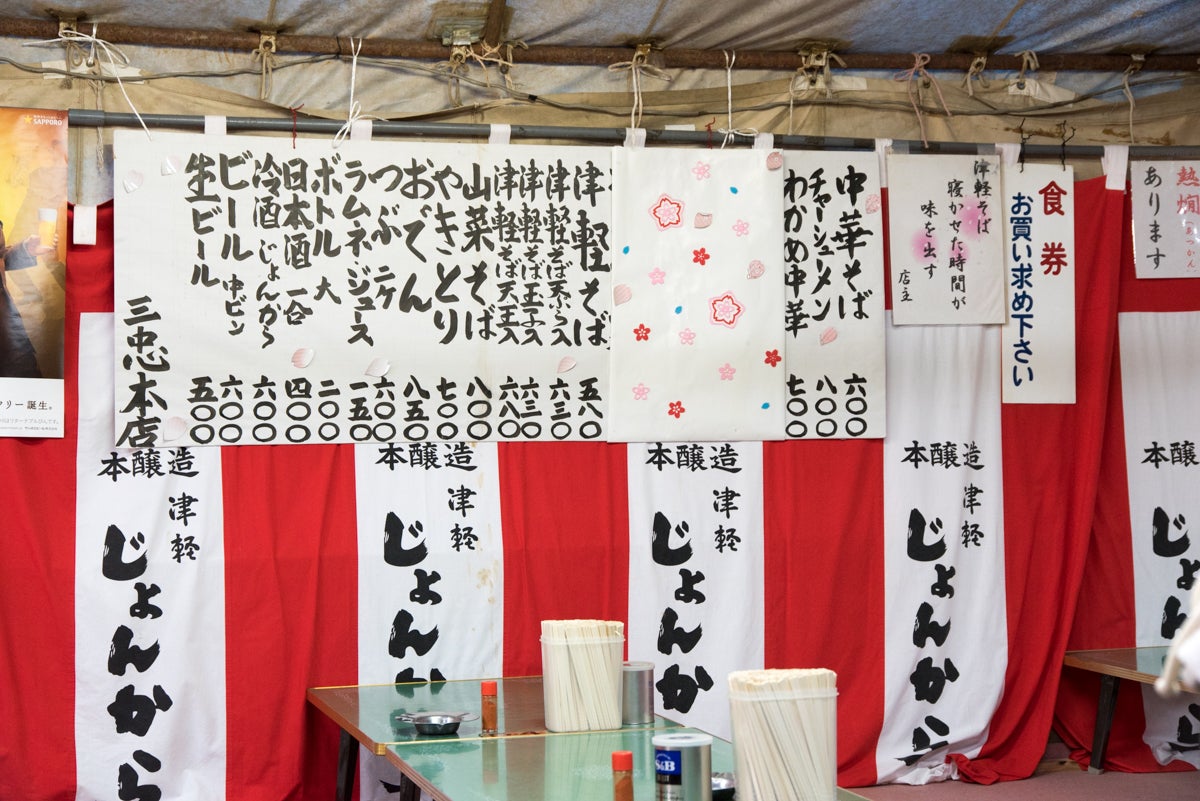 熱燗
あつかん
あります
食券
お買い求め下さい
津軽そば
寝かせた時間が
味を出す
店主
中華そば 六〇〇
チャーシューメン 八〇〇
わかめ中華 七〇〇
津軽そば 五八〇
津軽そば天ぷら入 六三〇
津軽そば玉子入 六三〇
津軽そば天玉入 六八〇
山菜そば 八〇〇
やきとり 七〇〇
おでん 八五〇
つぶ 二ケ 六〇〇
ラムネジュース 一五〇
ボトル 大 二〇〇
日本酒 一合 四〇〇
冷酒 じょんから 六〇〇
ビール 中ビン 六〇〇
生ビール 五〇〇
三忠本店
SAPPORO
フリー誕生。
本醸造
津軽
じょんから
本醸造
津軽
じょんか
本醸造
津軽
じょんか
本醸造
津軽
じょんから
本醸造
じょん
S&B